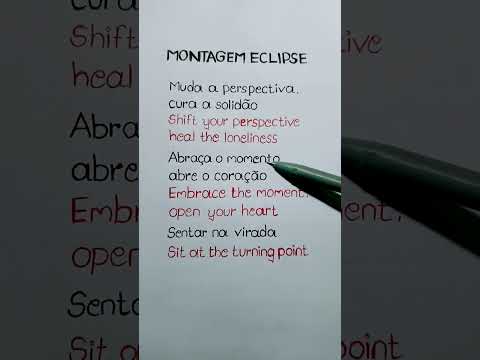 MONTAGEM ECLIPSE
Muda a perspectiva,
cura a solidão
Shift your perspective
heal the loneliness
Abraça o momento
abre o coração
Embrace the moment,
open your heart
Sentar na virada
Sit at the turning point